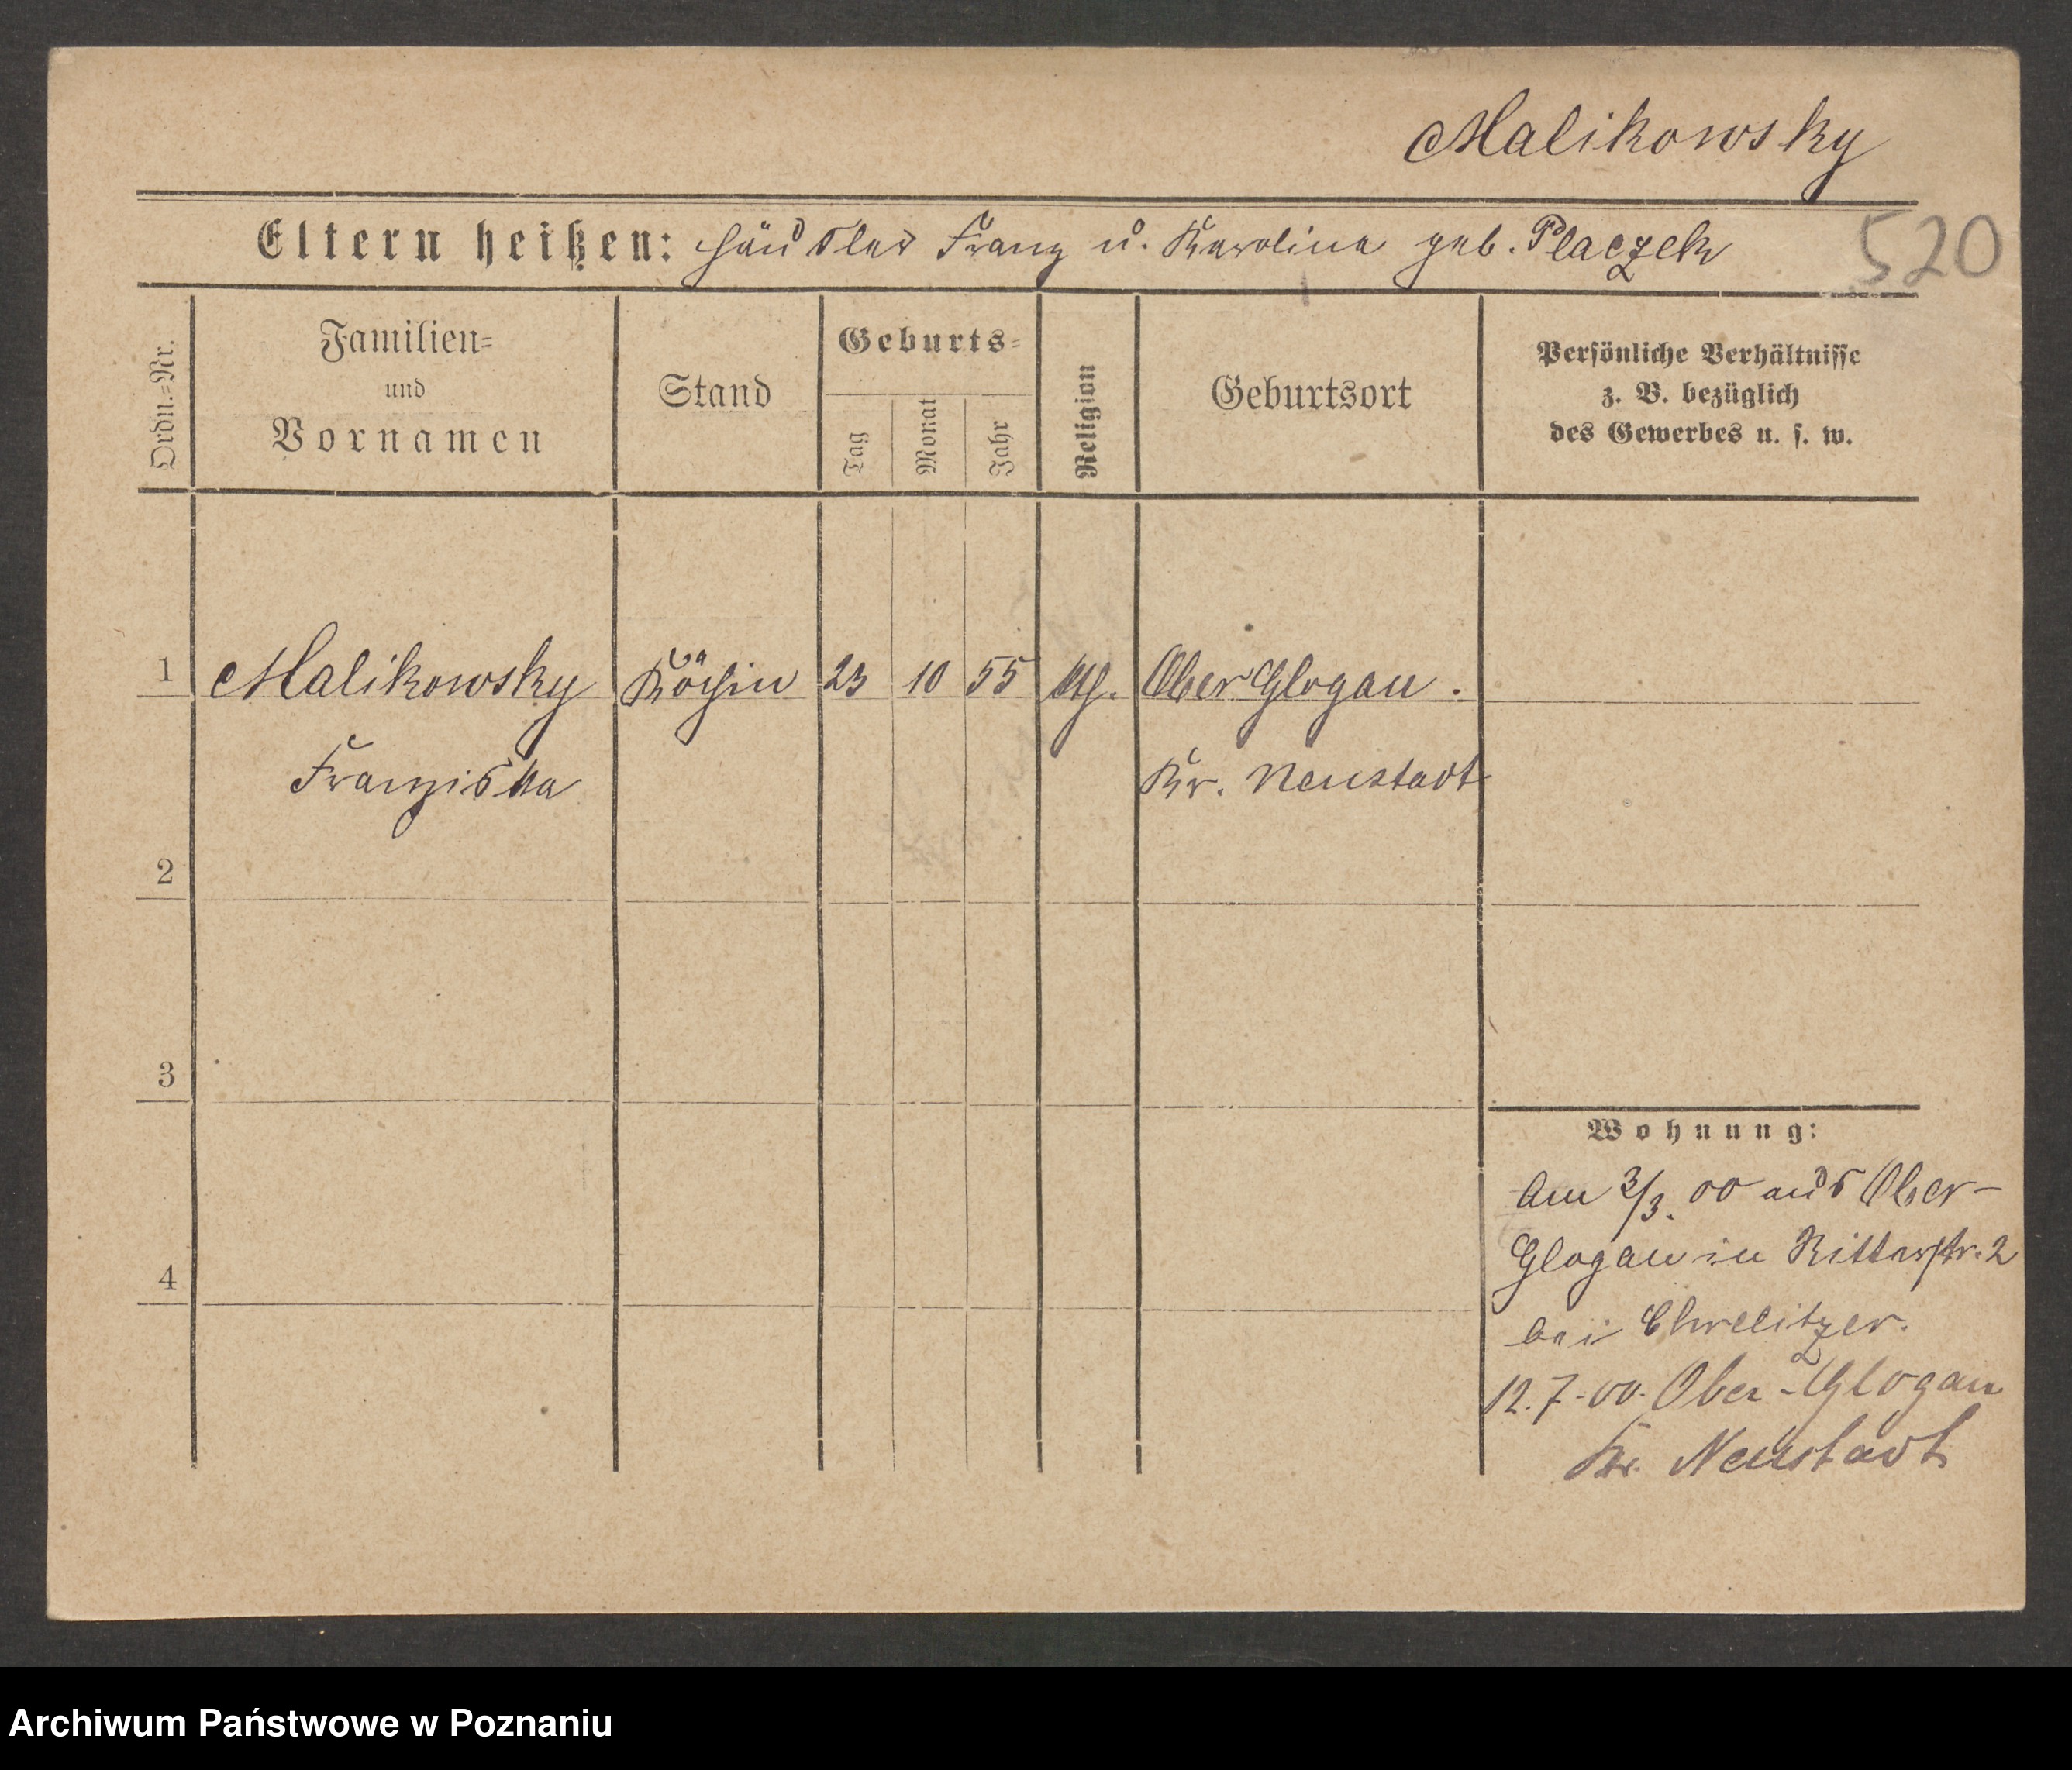 Malikowsky
Eltern heißen: Häusler Franz u. Karolina geb. Placzek
520
Ordn.=Nr.
Familien=
und
Vornamen
Stand
Geburts=
Tag
Monat
Jahr
Religion
Geburtsort
Persönliche Verhältnisse
z. B. bezüglich
des Gewerbes u. s. w.
1 Malikowsky Köchin 23 10 55 kth. Ober Glogau.
Franziska Kr. Neustadt
2
3
4
Wohnung:
Am 3/3. 00 aus Ober-
Glogau in Ritterstr. 2
bei Chrelitzer.
12.7.-00. Ober-Glogau
Kr. Neustadt
Archiwum Państwowe w Poznaniu